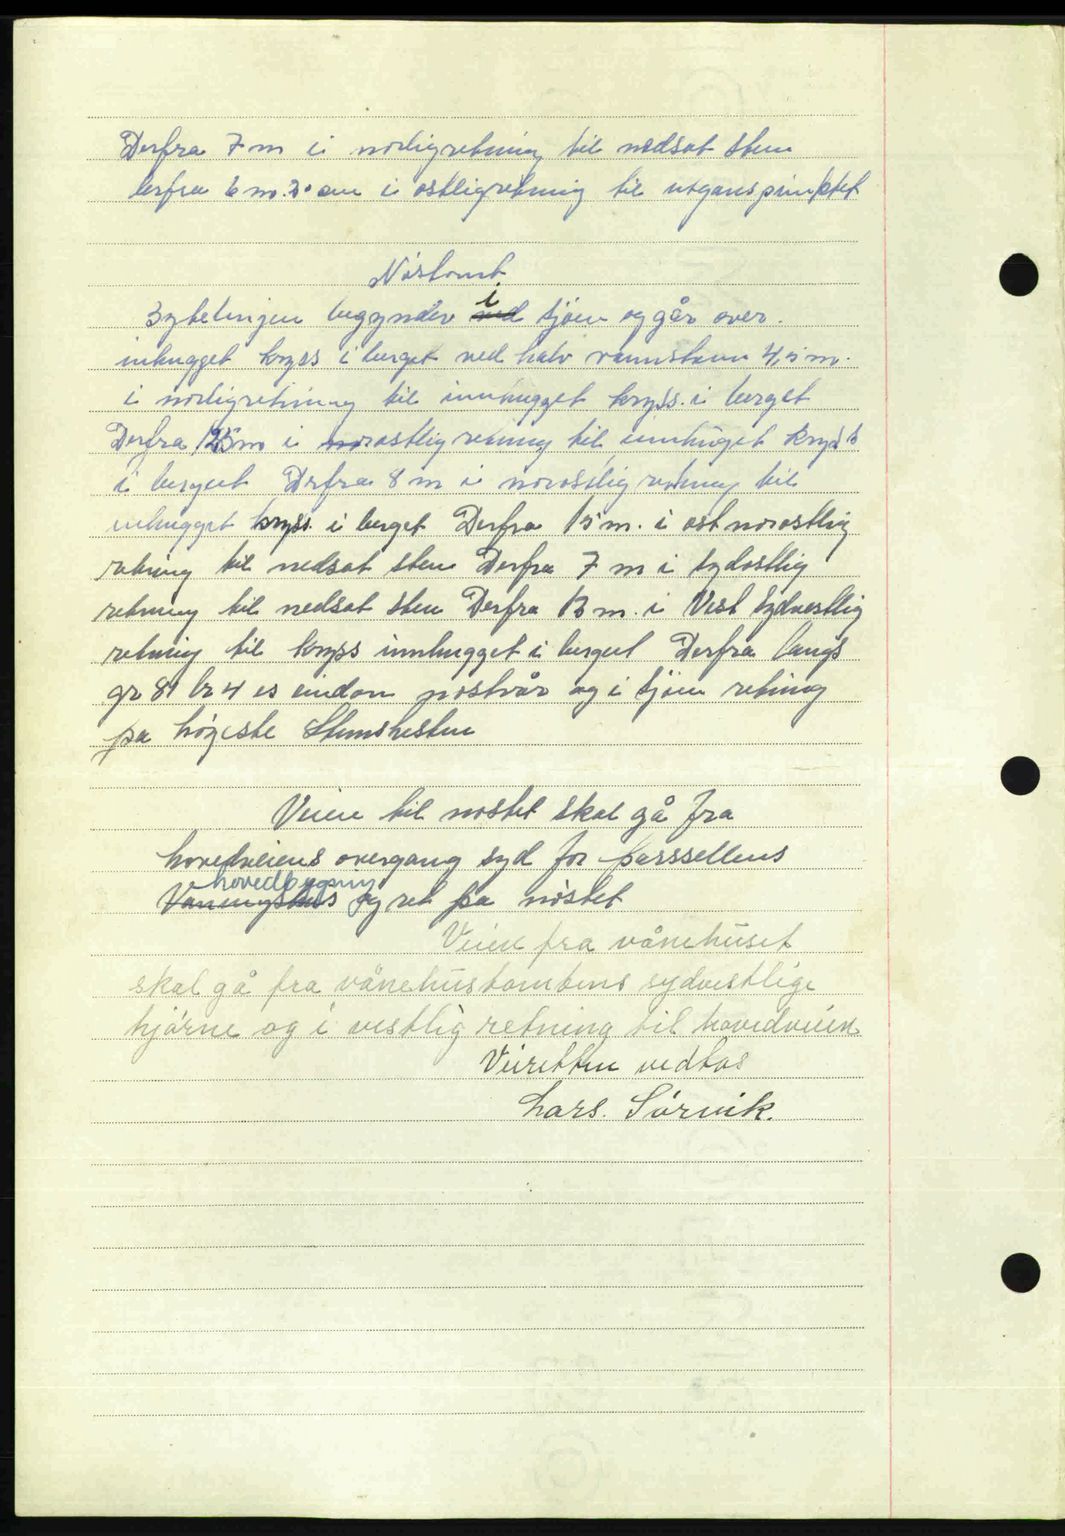 Derfra 7 m i norligretning til nedsat sten
derfra 6 m. 30 cm i ostligretning til utganspunktet
Nöstomt
Bytelinjen begynder i ved sjöen og går over.
inhugget kryss i berget ved halv vannstann 4,5 m.
i norligretning til innhugget kryss. i berget
Derfra 125 m i norostlig retning til innhuget kryss
i berget Derfra 8 m i norostlig retning til
inhugget kryss i berget Derfra 15 m. i ost norostlig
retning til nedsat sten Derfra 7 m i sydostlig
retning til nedsat sten Derfra 13 m. i Vest Sydvestlig
retning til kryss innhugget i berget Derfra langs
gr 81 br 4 es eindom nostvår og i sjöen retning
pa högeste Stemshesten
Veien til nostet skal gå fra
hovedveiens overgang syd for parssellens
hovedbygning
Vaningshus og ret pa nöstet
Veien fra vånehuset
skal gå fra vånehustomtens sydvestlige
hjörne og i vestlig retning til hovedveien
Veiretten vedtas
Lars. Sörvik.